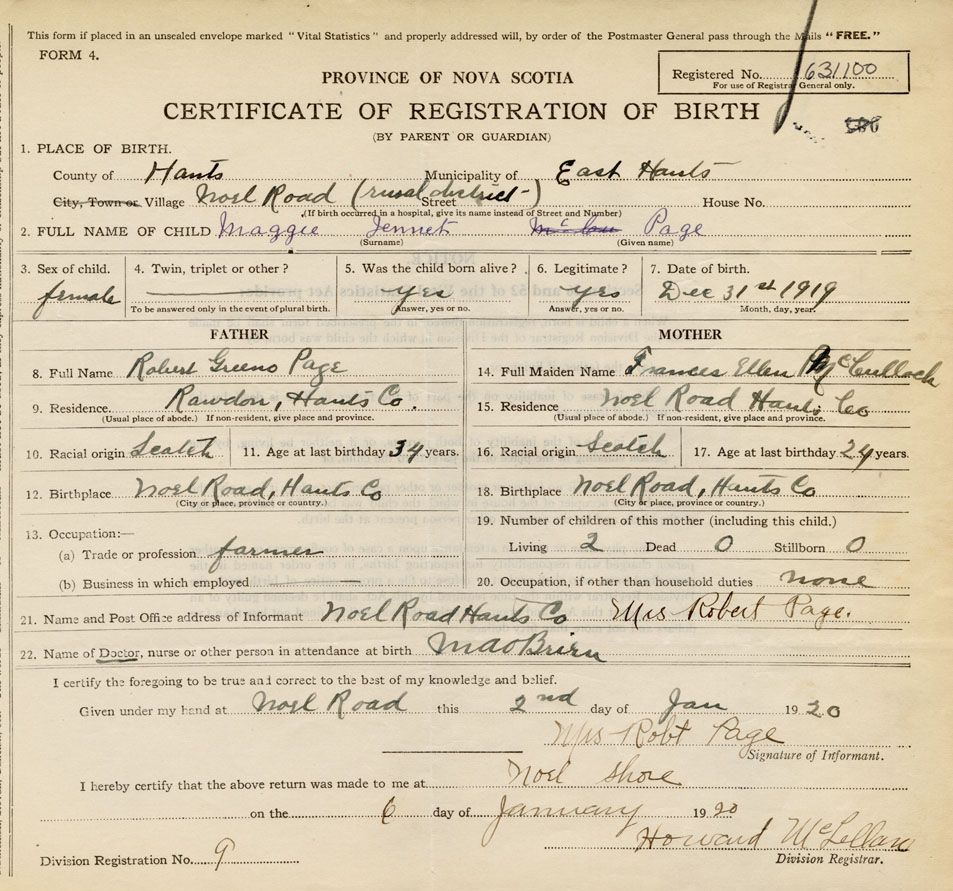 This form if placed in an unsealed envelope marked "Vital Statistics" and properly addressed will, by order of the Postmaster General pass through the Mails "FREE."
FORM 4.
Registered No. 631100
For use of Registrar General only.
PROVINCE OF NOVA SCOTIA
CERTIFICATE OF REGISTRATION OF BIRTH
(BY PARENT OR GUARDIAN)
1. PLACE OF BIRTH.
County of Hants Municipality of East Hants
City, Town or Village Noel Road (rural district) Street House No.
(If birth occurred in a hospital, give its name instead of Street and Number)
2. FULL NAME OF CHILD Maggie Jennet Page
(Surname) (Given name)
3. Sex of child. 4. Twin, triplet or other? 5. Was the child born alive? 6. Legitimate? 7. Date of birth.
female yes yes Dec 31st 1919
To be answered only in the event of plural birth. Answer, yes or no. Answer, yes or no. Month, day, year.
FATHER MOTHER
8. Full Name Robert Greeno Page 14. Full Maiden Name Frances Ellen McCulloch
9. Residence Rawdon, Hants Co. 15. Residence Noel Road Hants Co
(Usual place of abode.) If non-resident, give place and province. (Usual place of abode.) If non-resident, give place and province.
10. Racial origin Scotch 11. Age at last birthday 34 years. 16. Racial origin Scotch 17. Age at last birthday 24 years.
12. Birthplace Noel Road, Hants Co 18. Birthplace Noel Road, Hants Co
(City or place, province or country.) (City or place, province or country.)
13. Occupation:— 19. Number of children of this mother (including this child.)
(a) Trade or profession farmer Living 2 Dead 0 Stillborn 0
(b) Business in which employed 20. Occupation, if other than household duties none
21. Name and Post Office address of Informant Noel Road Hants Co Mrs Robert Page.
22. Name of Doctor, nurse or other person in attendance at birth
I certify the foregoing to be true and correct to the best of my knowledge and belief.
Given under my hand at Noel Road this 2nd day of Jan 1920
Mrs Robt Page
Signature of Informant.
I hereby certify that the above return was made to me at Noel Shore
on the 6 day of January 1920
Howard McLellan
Division Registration No. 9 Division Registrar.